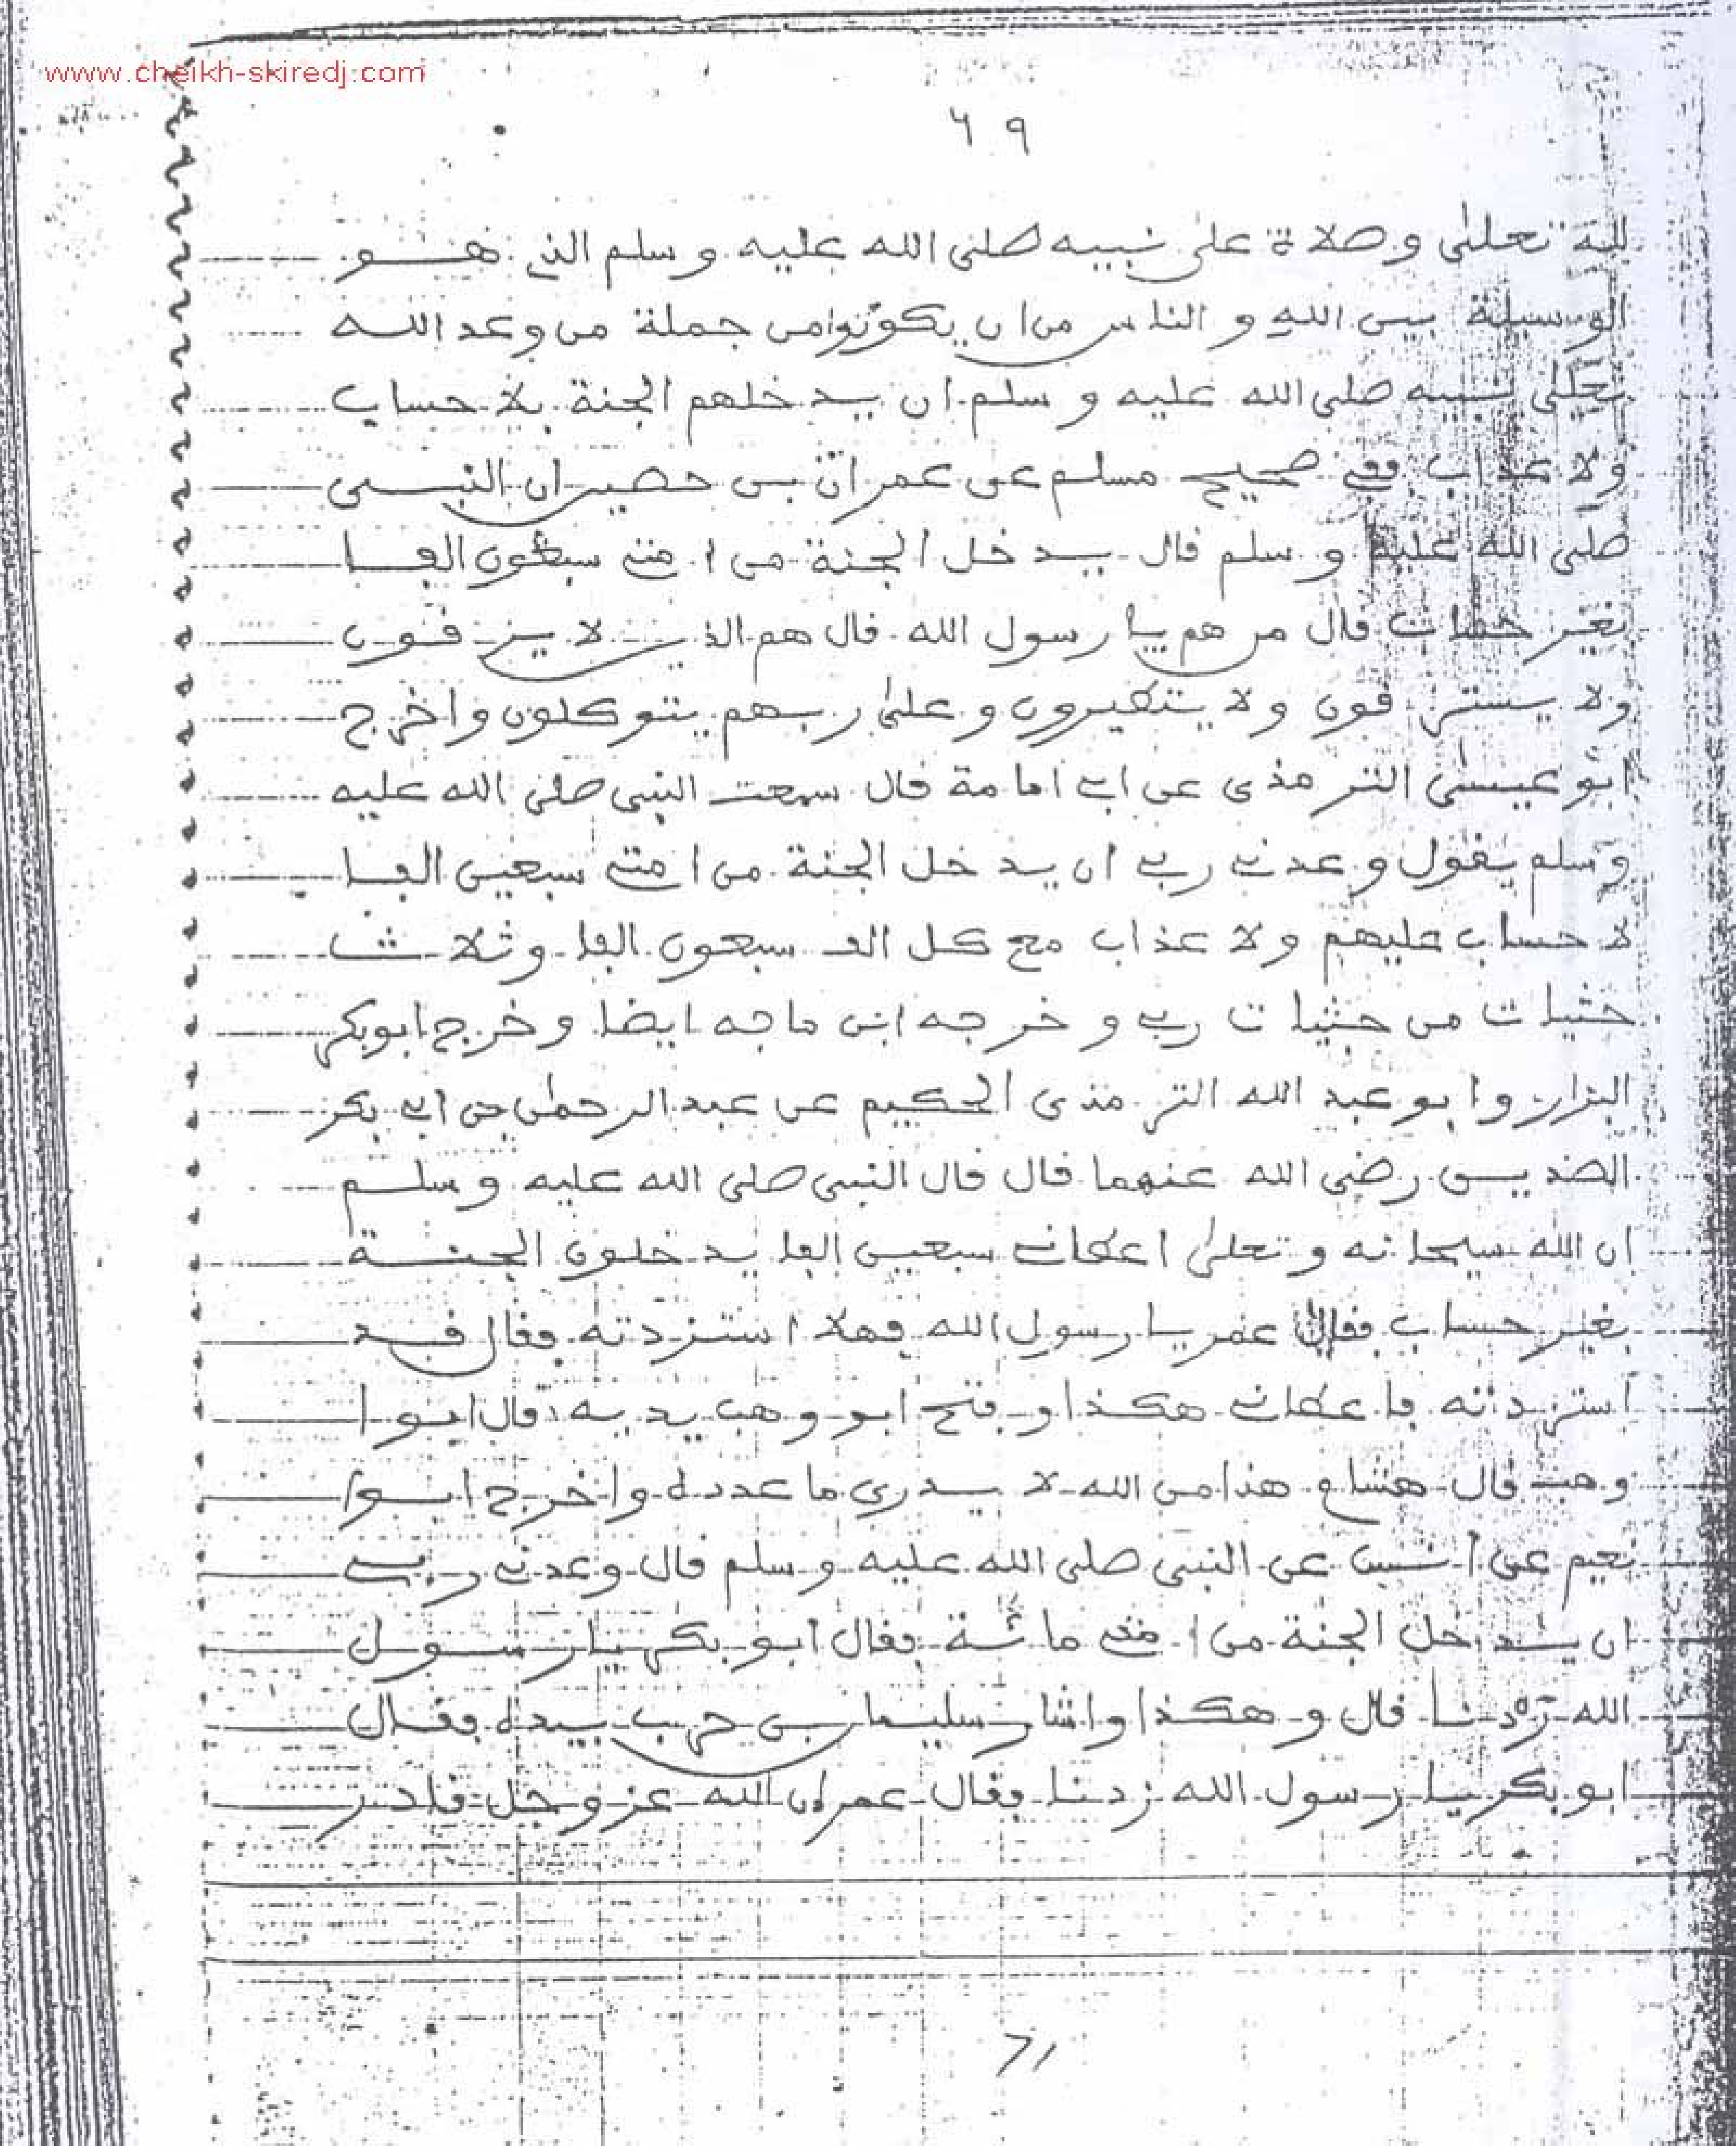 www.cheikh-skiredj.com
٦٩
لله تعلى وصلاة على نبيه صلى الله عليه وسلم الذي هو
الوسيلة بين الله والناس من ان يكونوا من جملة من وعد الله
تعلى نبيه صلى الله عليه وسلم ان يدخلهم الجنة بلا حساب
ولا عذاب ففي صحيح مسلم عن عمران بن حصين ان النبي
صلى الله عليه وسلم قال يدخل الجنة من امتي سبعون الفا
بغير حساب قال من هم يا رسول الله قال هم الذين لا يرقون
ولا يسترقون ولا يتطيرون وعلى ربهم يتوكلون واخرج
ابو عيسى الترمذى عن ابي امامة قال سمعت النبي صلى الله عليه
وسلم يقول وعدني ربي ان يدخل الجنة من امتي سبعين الفا
لا حساب عليهم ولا عذاب مع كل الف سبعون الفا وثلاث
حثيات من حثيات ربي وخرجه ابن ماجه ايضا وخرج ابو بكر
البزار وابو عبد الله الترمذى الحكيم عن عبد الرحمن بن ابي بكر
الصديق رضي الله عنهما قال قال النبي صلى الله عليه وسلم
ان الله سبحانه وتعلى اعطاني سبعين الفا يدخلون الجنة
بغير حساب فقال عمر يا رسول الله فهلا استزدته فقال قد
استزدته فاعطاني هكذا وفتح ابو وهب يديه قال ابوا
وهب قال هشام هذا من الله لا يدرى ما عدده واخرج ابوا
نعيم عن انس عن النبي صلى الله عليه وسلم قال وعدني ربي
ان يدخل الجنة من امتي مائة فقال ابو بكر يا رسول
الله زدنا قال وهكذا واشار سليمان بن حرب بيده فقال
ابو بكر يا رسول الله زدنا فقال عمر ان الله عز وجل قادر